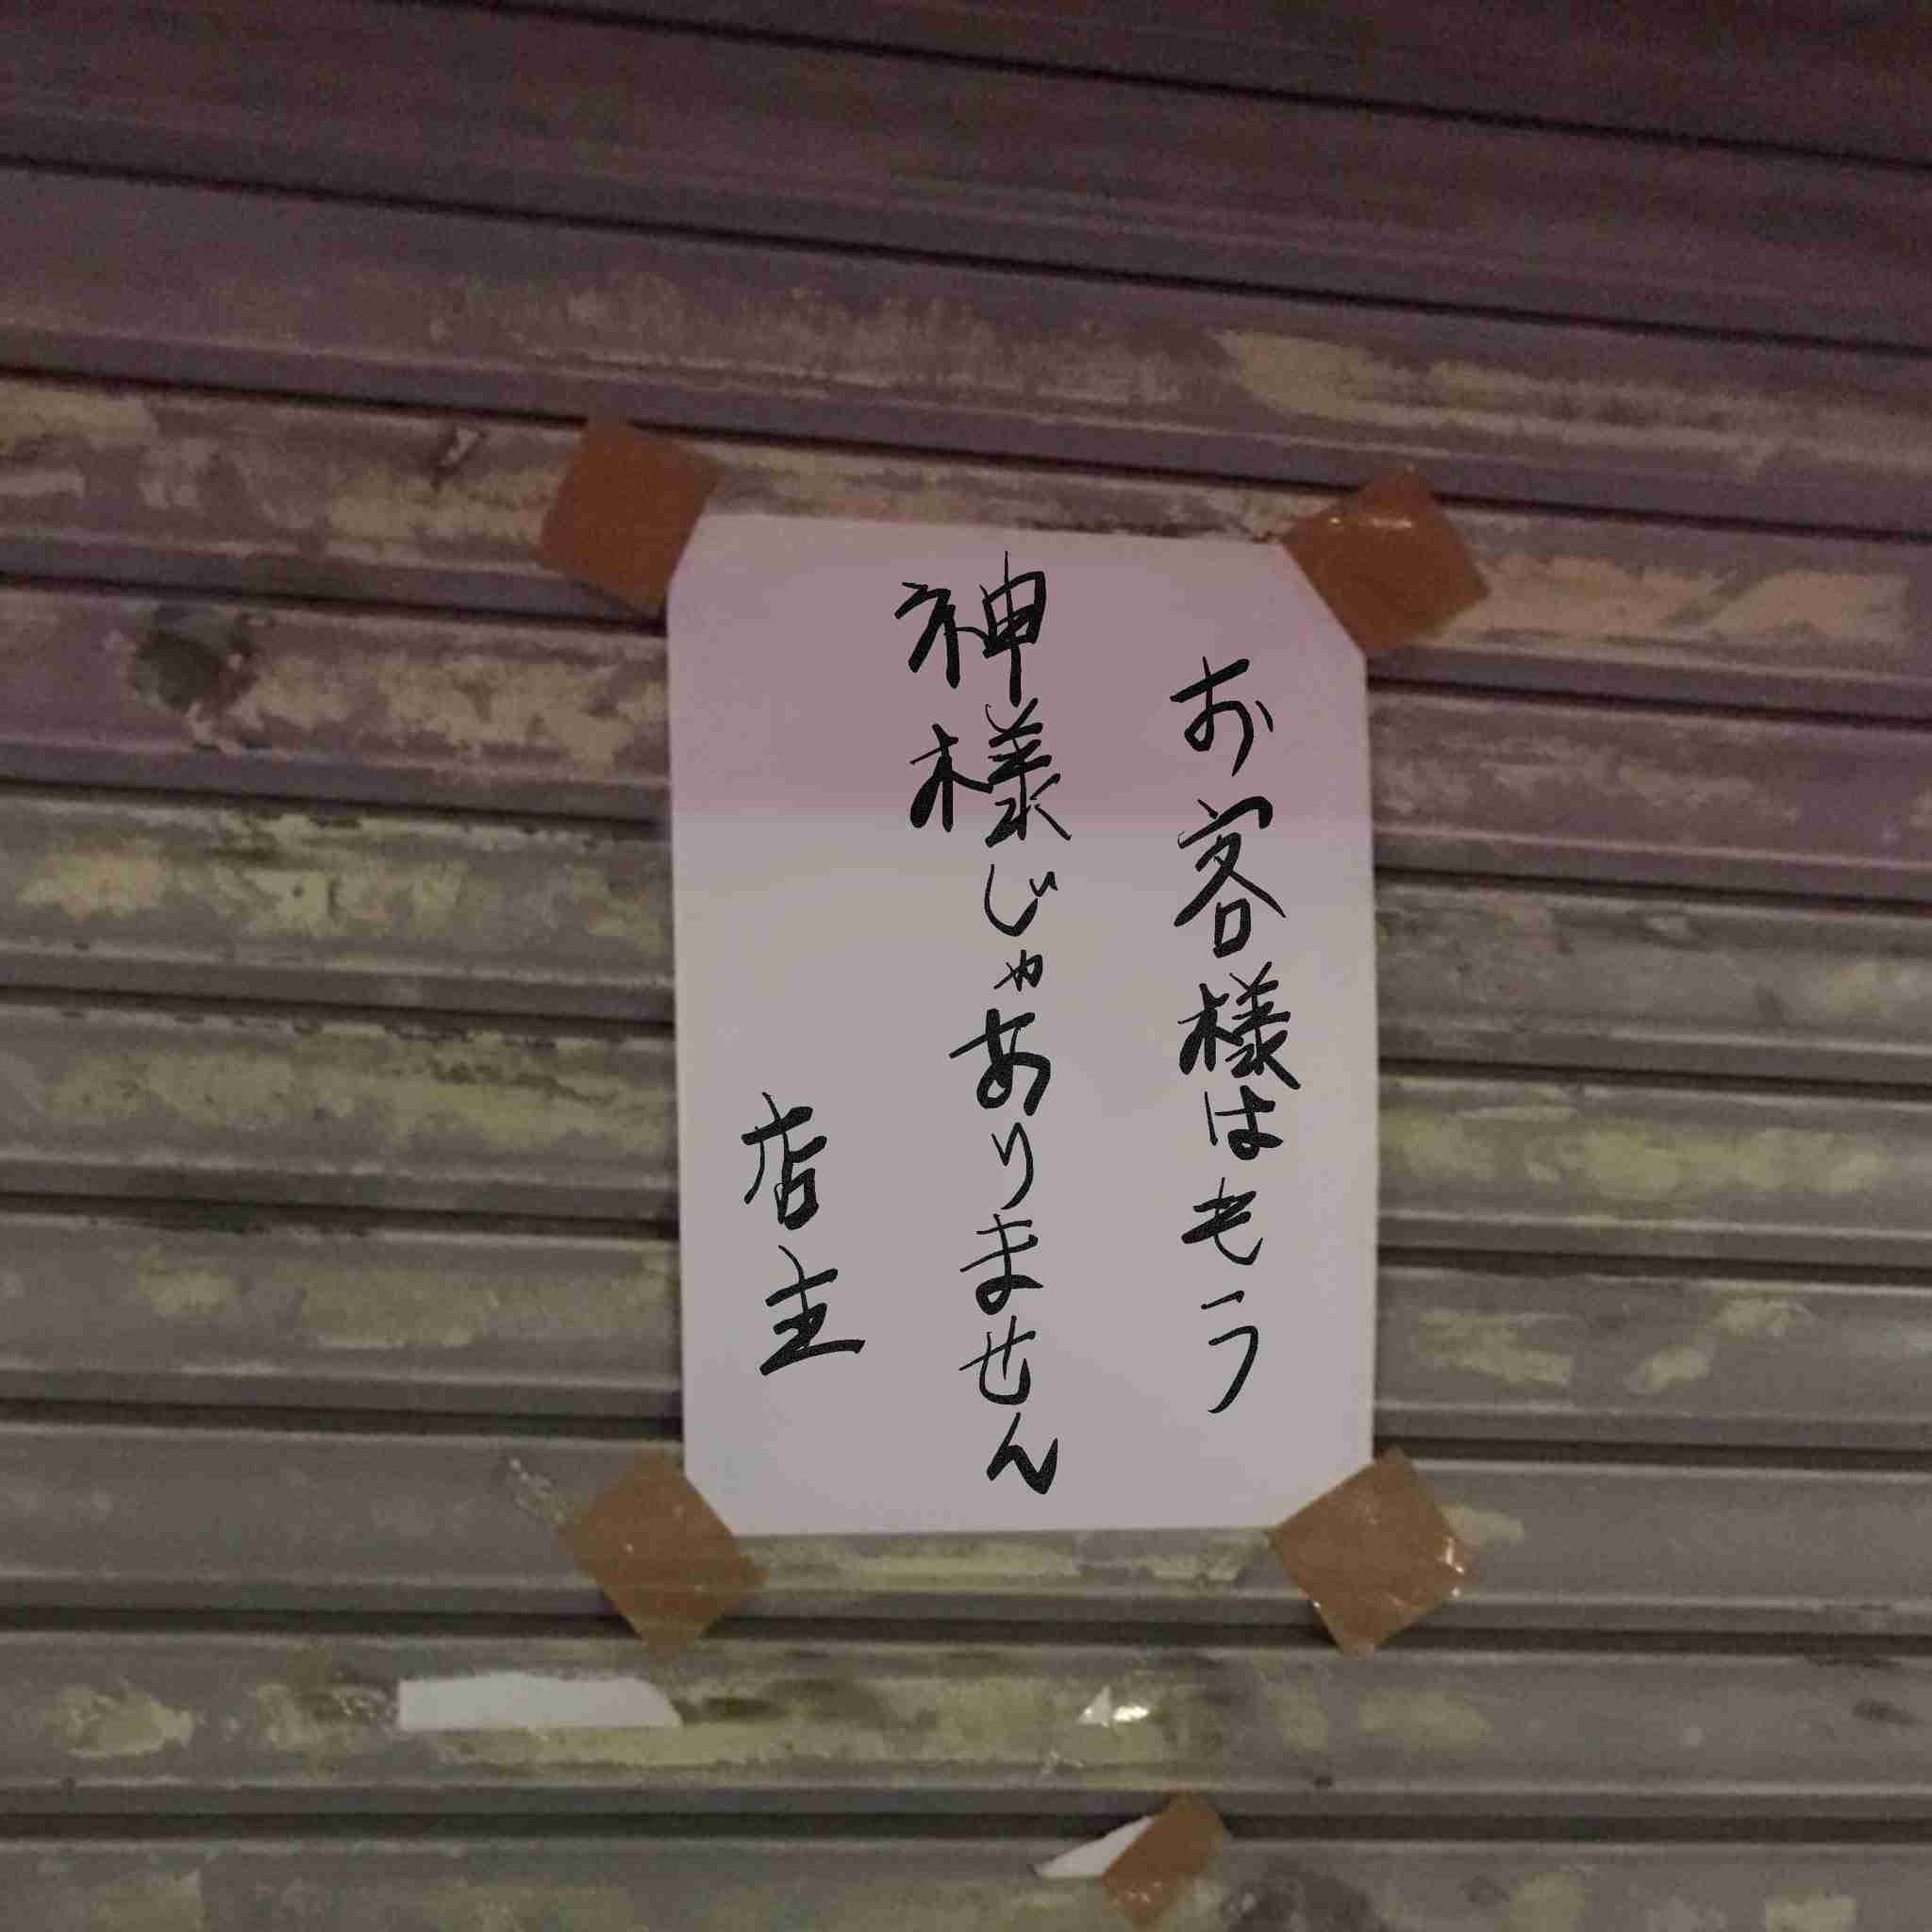 お客様はもう
神様じゃありません
店主